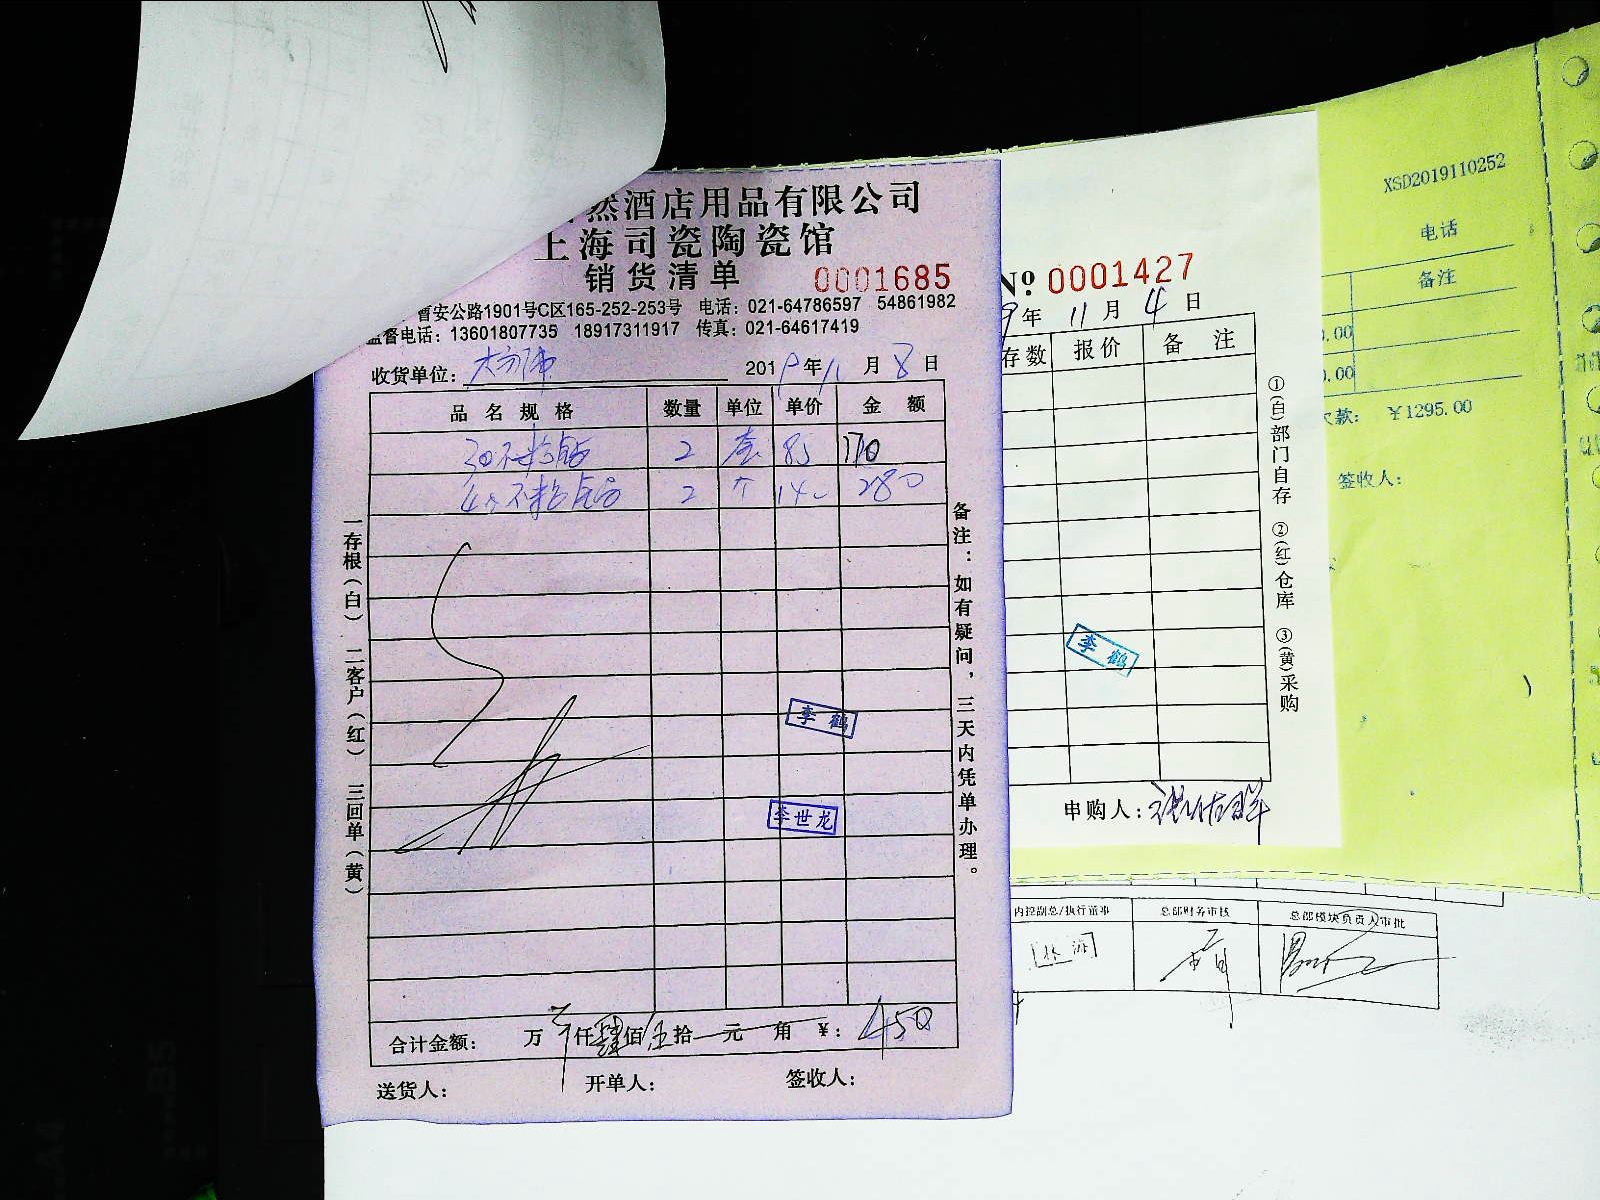 然酒店用品有限公司
上海司瓷陶瓷馆
销货清单 0001685
晋安公路1901号C区165-252-253号 电话：021-64786597 54861982
监督电话：13601807735 18917311917 传真：021-64617419
收货单位： 2019年11月8日
品名规格 数量 单位 单价 金额
30不粘 2 套 85 170
不粘 2 个 140 280
李鹤
李世龙
合计金额： 万 仟肆佰伍拾 元 角 ¥：450
送货人： 开单人： 签收人：
一存根（白） 二客户（红） 三回单（黄）
备注：如有疑问，三天内凭单办理。
№ 0001427
9年11月4日
存数 报价 备注
李鹤
申购人：
①(白)部门自存 ②(红)仓库 ③(黄)采购
XSD2019110252
电话
备注
0.00
0.00
欠款： ¥1295.00
签收人：
内控副总/执行董事 总部财务审核 总部模块负责人审批